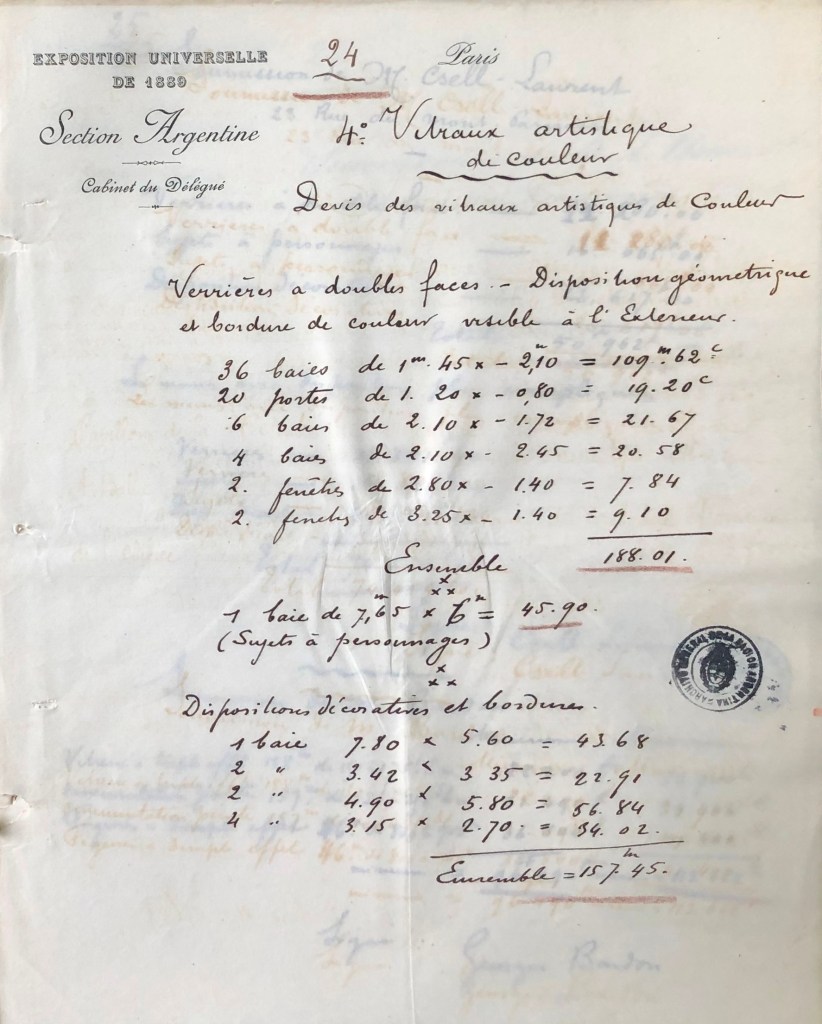 EXPOSITION UNIVERSELLE
DE 1889
Section Argentine
Cabinet du Délégué
24
Paris
4º Vitraux artistique
de couleur
Devis des vitraux artistiques de Couleur
Verrières a doubles faces. - Disposition géometrique
et bordure de couleur visible à l'Exterieur.
36 baies de 1m. 45 x - 2,10 = 109m.62c
20 portes de 1. 20 x - 0,80 = 19.20c
6 baies de 2.10 x - 1.72 = 21.67
4 baies de 2.10 x - 2.45 = 20.58
2. fenêtres de 2.80 x - 1.40 = 7.84
2. fenetres de 3.25 x - 1.40 = 9.10
Ensemble 188.01.
1 baie de 7m,65 x 6m = 45.90.
(Sujets à personnages)
Dispositions décoratives et bordures.
1 baie 7.80 x 5.60 = 43.68
2 " 3.42 x 3.35 = 22.91
2 " 4.90 x 5.80 = 56.84
4 " 3.15 x 2.70 = 34.02.
Ensemble = 157m45.
ARCHIVO GENERAL DE LA NACION ARGENTINA